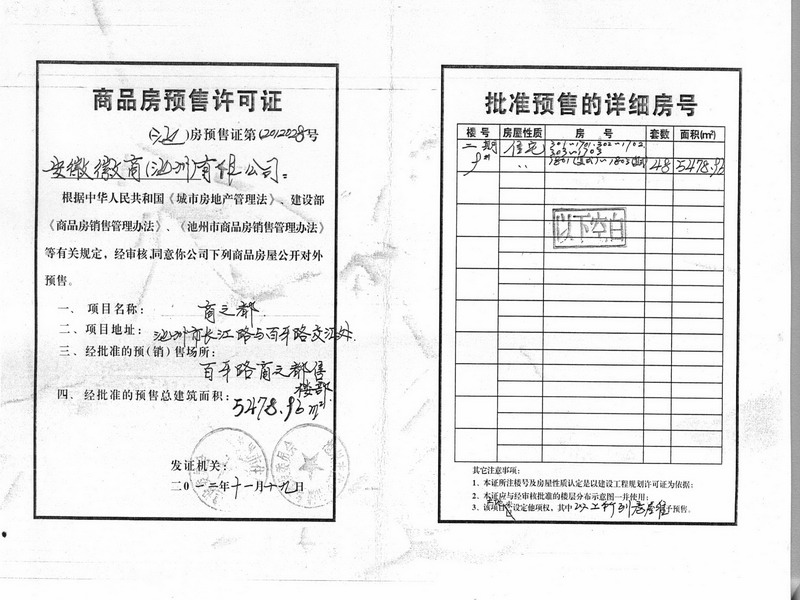 商品房预售许可证
(池)房预售证第(2012028号
安徽徽商(池州)有限公司:
根据中华人民共和国《城市房地产管理法》、建设部
《商品房销售管理办法》、《池州市商品房销售管理办法》
等有关规定，经审核,同意你公司下列商品房屋公开对外
预售。
一、项目名称：商之都
二、项目地址：池州市长江路与百牙路交汇处.
三、经批准的预(销)售场所：
百牙路商之都售
楼部
四、经批准的预售总建筑面积：
5478.96m²
发证机关：
二〇一二年十一月十九日
批准预售的详细房号
楼号 房屋性质 房号 套数 面积(m²)
二期 住宅 301~1701.302~1702
303~1703
9# 〃 48 5478.96
以下空白
其它注意事项：
1．本证所注楼号及房屋性质认定是以建设工程规划许可证为依据；
2．本证应与经审核批准的楼层分布示意图一并使用；
3．该项目设定他项权，其中以上所列房屋准予预售。